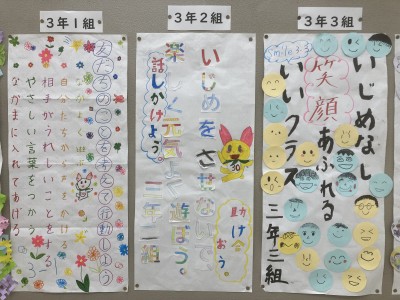 3年1組
友だちのことを考えて行動しよう
自分たちから声をかける
相手がうれしいことをする
やさしい言葉をつかう
なかまに入れてあげる
3年2組
いじめをさせないで
楽しく元気よく遊ぼう。
話しかけよう。
三年二組
助け合
おう。
3年3組
いじめなし
笑顔あふれる
いいクラス
三年三組